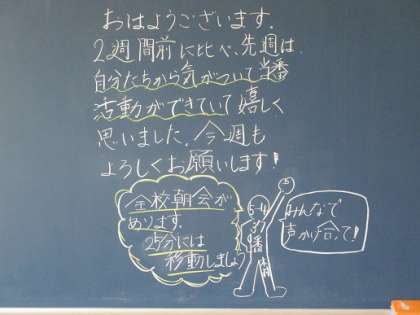 おはようございます.
2週間前に比べ、先週は
自分たちから気がついて当番
活動ができていて嬉しく
思いました.今週も
よろしくお願いします!
全校朝会が
あります.
25分には
移動しましょう
5-4
みんなで
声かけ合って!